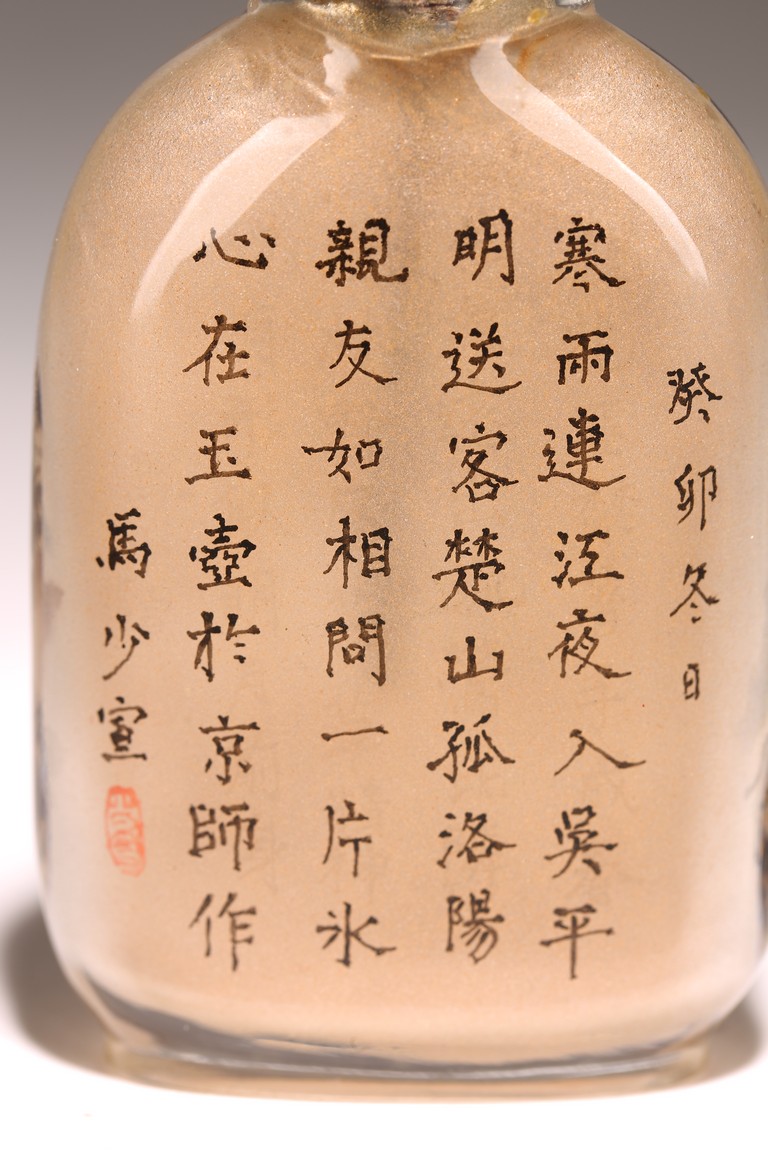 癸卯冬日
寒雨連江夜入吳平
明送客楚山孤洛陽
親友如相問一片氷
心在玉壺於京師作
馬少宣